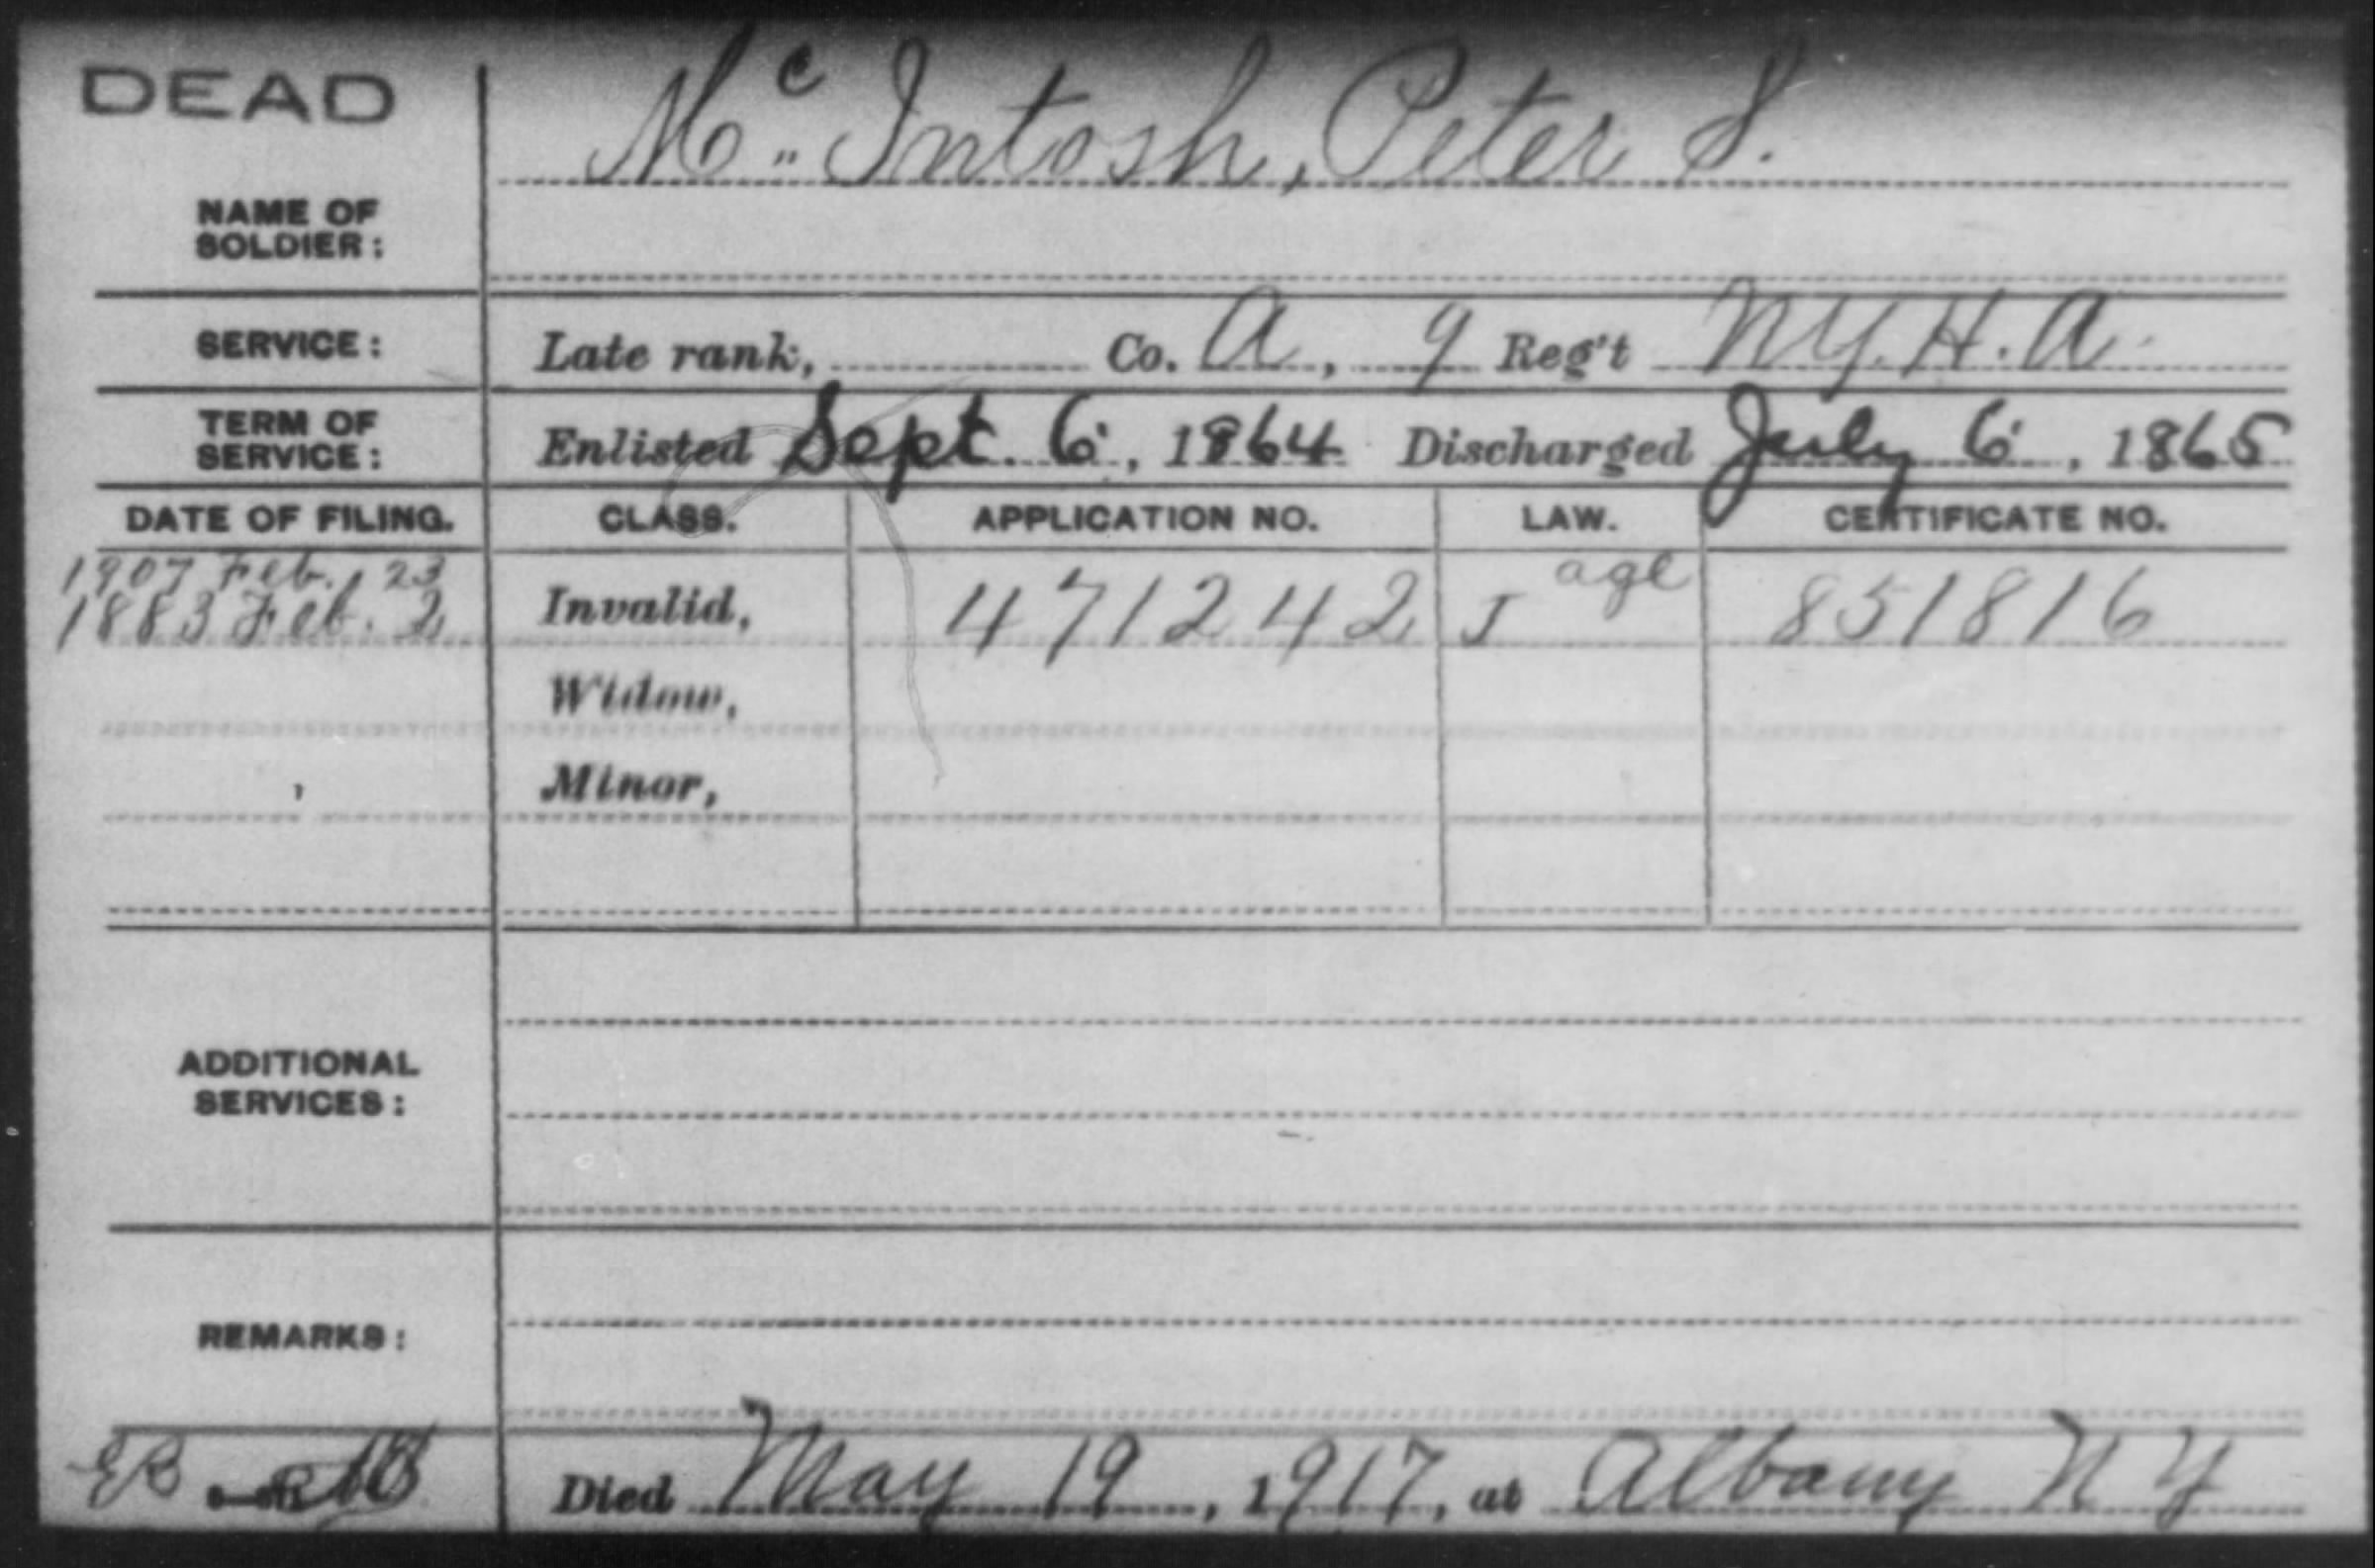 DEAD
Mc Intosh, Peter S.
NAME OF
SOLDIER:
SERVICE: Late rank, Co. A, 9 Reg't N.Y. H. A.
TERM OF
SERVICE: Enlisted Sept. 6, 1864 Discharged July 6, 1865
DATE OF FILING. CLASS. APPLICATION NO. LAW. CERTIFICATE NO.
1907 Feb. 23 age
1883 Feb. 2 Invalid, 471242 J 851816
Widow,
Minor,
ADDITIONAL
SERVICES:
REMARKS:
Died May 19, 1917, at Albany N Y